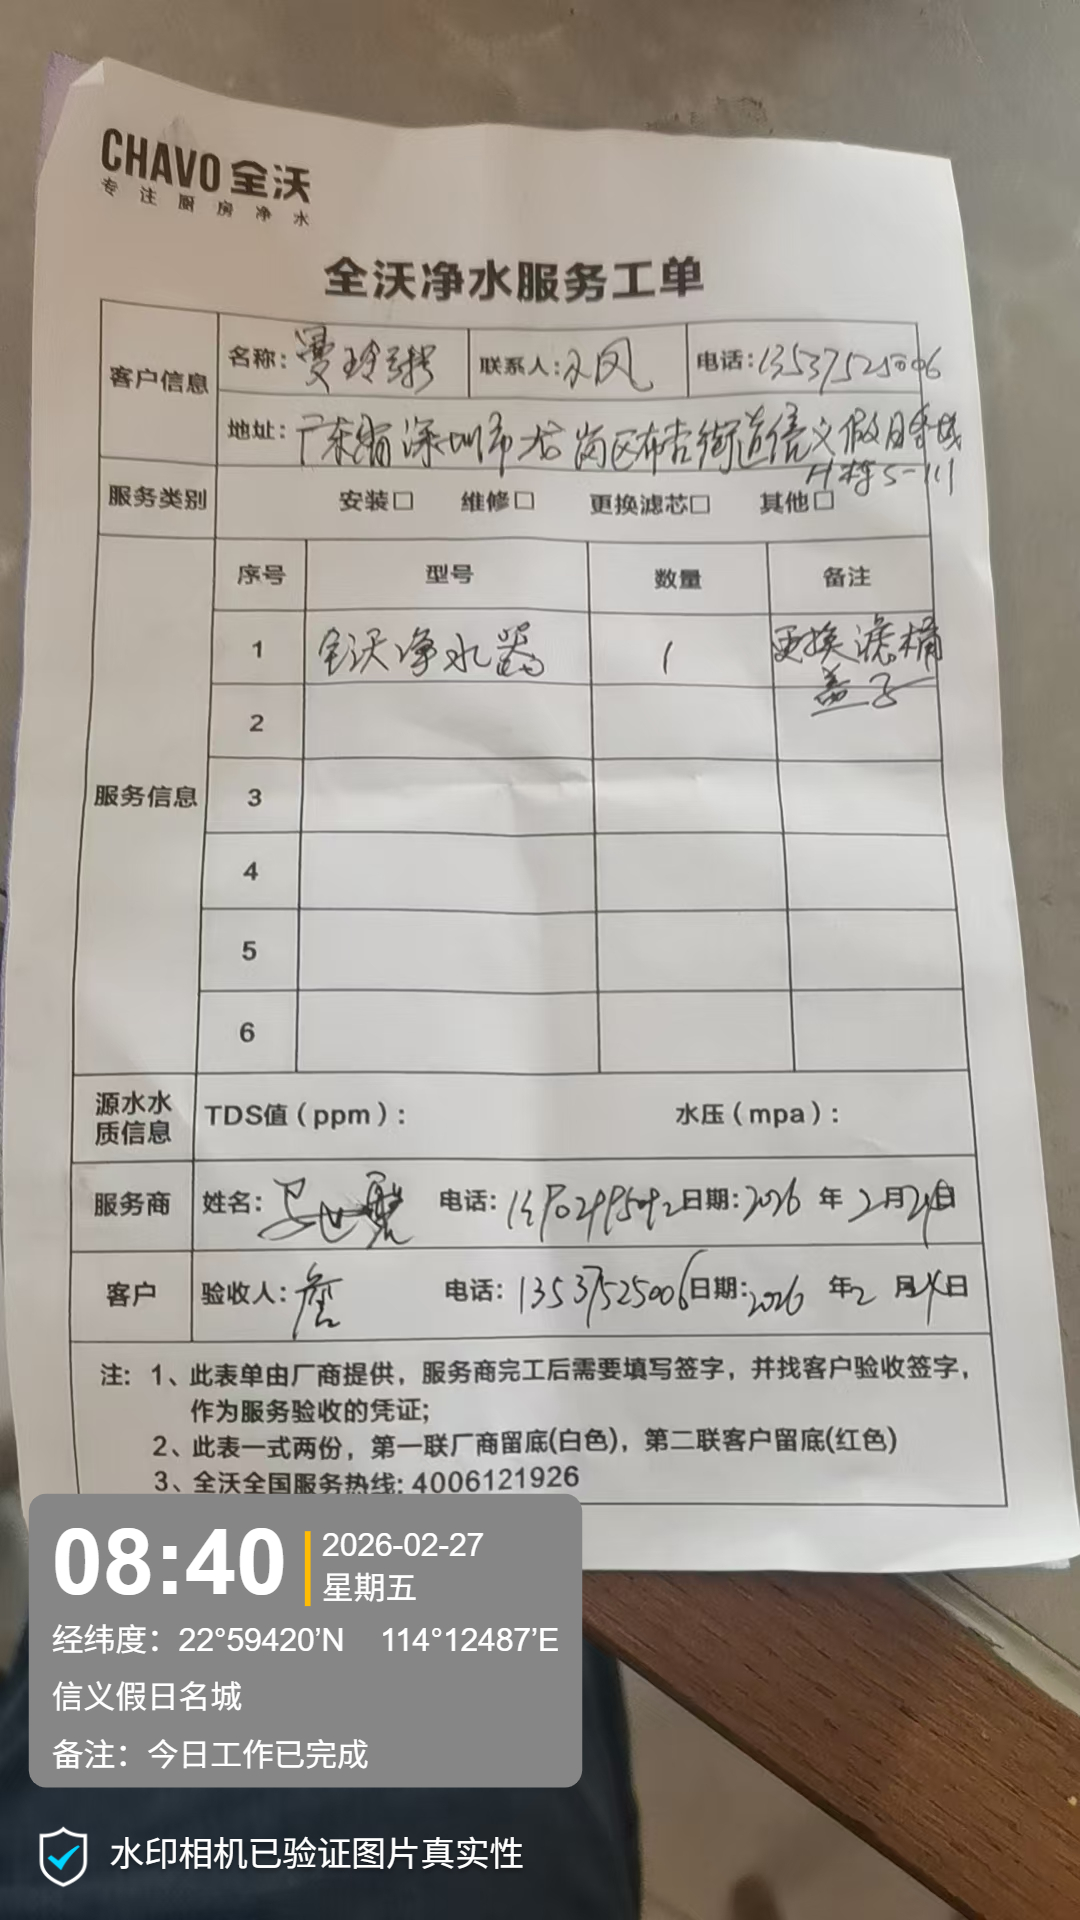 CHAVO 全沃
专注厨房净水
全沃净水服务工单
客户信息 名称：曼玲粥 联系人： 凤 电话：13537525006
地址：广东省深圳市龙岗区布吉街道信义假日名城
H栋S-111
服务类别 安装□ 维修□ 更换滤芯□ 其他□
序号 型号 数量 备注
1 全沃净水器 1 更换滤桶
盖子
2
服务信息 3
4
5
6
源水水质信息 TDS值（ppm）： 水压（mpa）：
服务商 姓名： 电话： 日期：2026 年 2月 日
客户 验收人：詹 电话：13537525006 日期：2026 年2 月 日
注：1、此表单由厂商提供，服务商完工后需要填写签字，并找客户验收签字，
作为服务验收的凭证；
2、此表一式两份，第一联厂商留底(白色)，第二联客户留底(红色)
3、全沃全国服务热线: 4006121926
08:40 2026-02-27
星期五
经纬度：22°59420’N 114°12487’E
信义假日名城
备注：今日工作已完成
水印相机已验证图片真实性